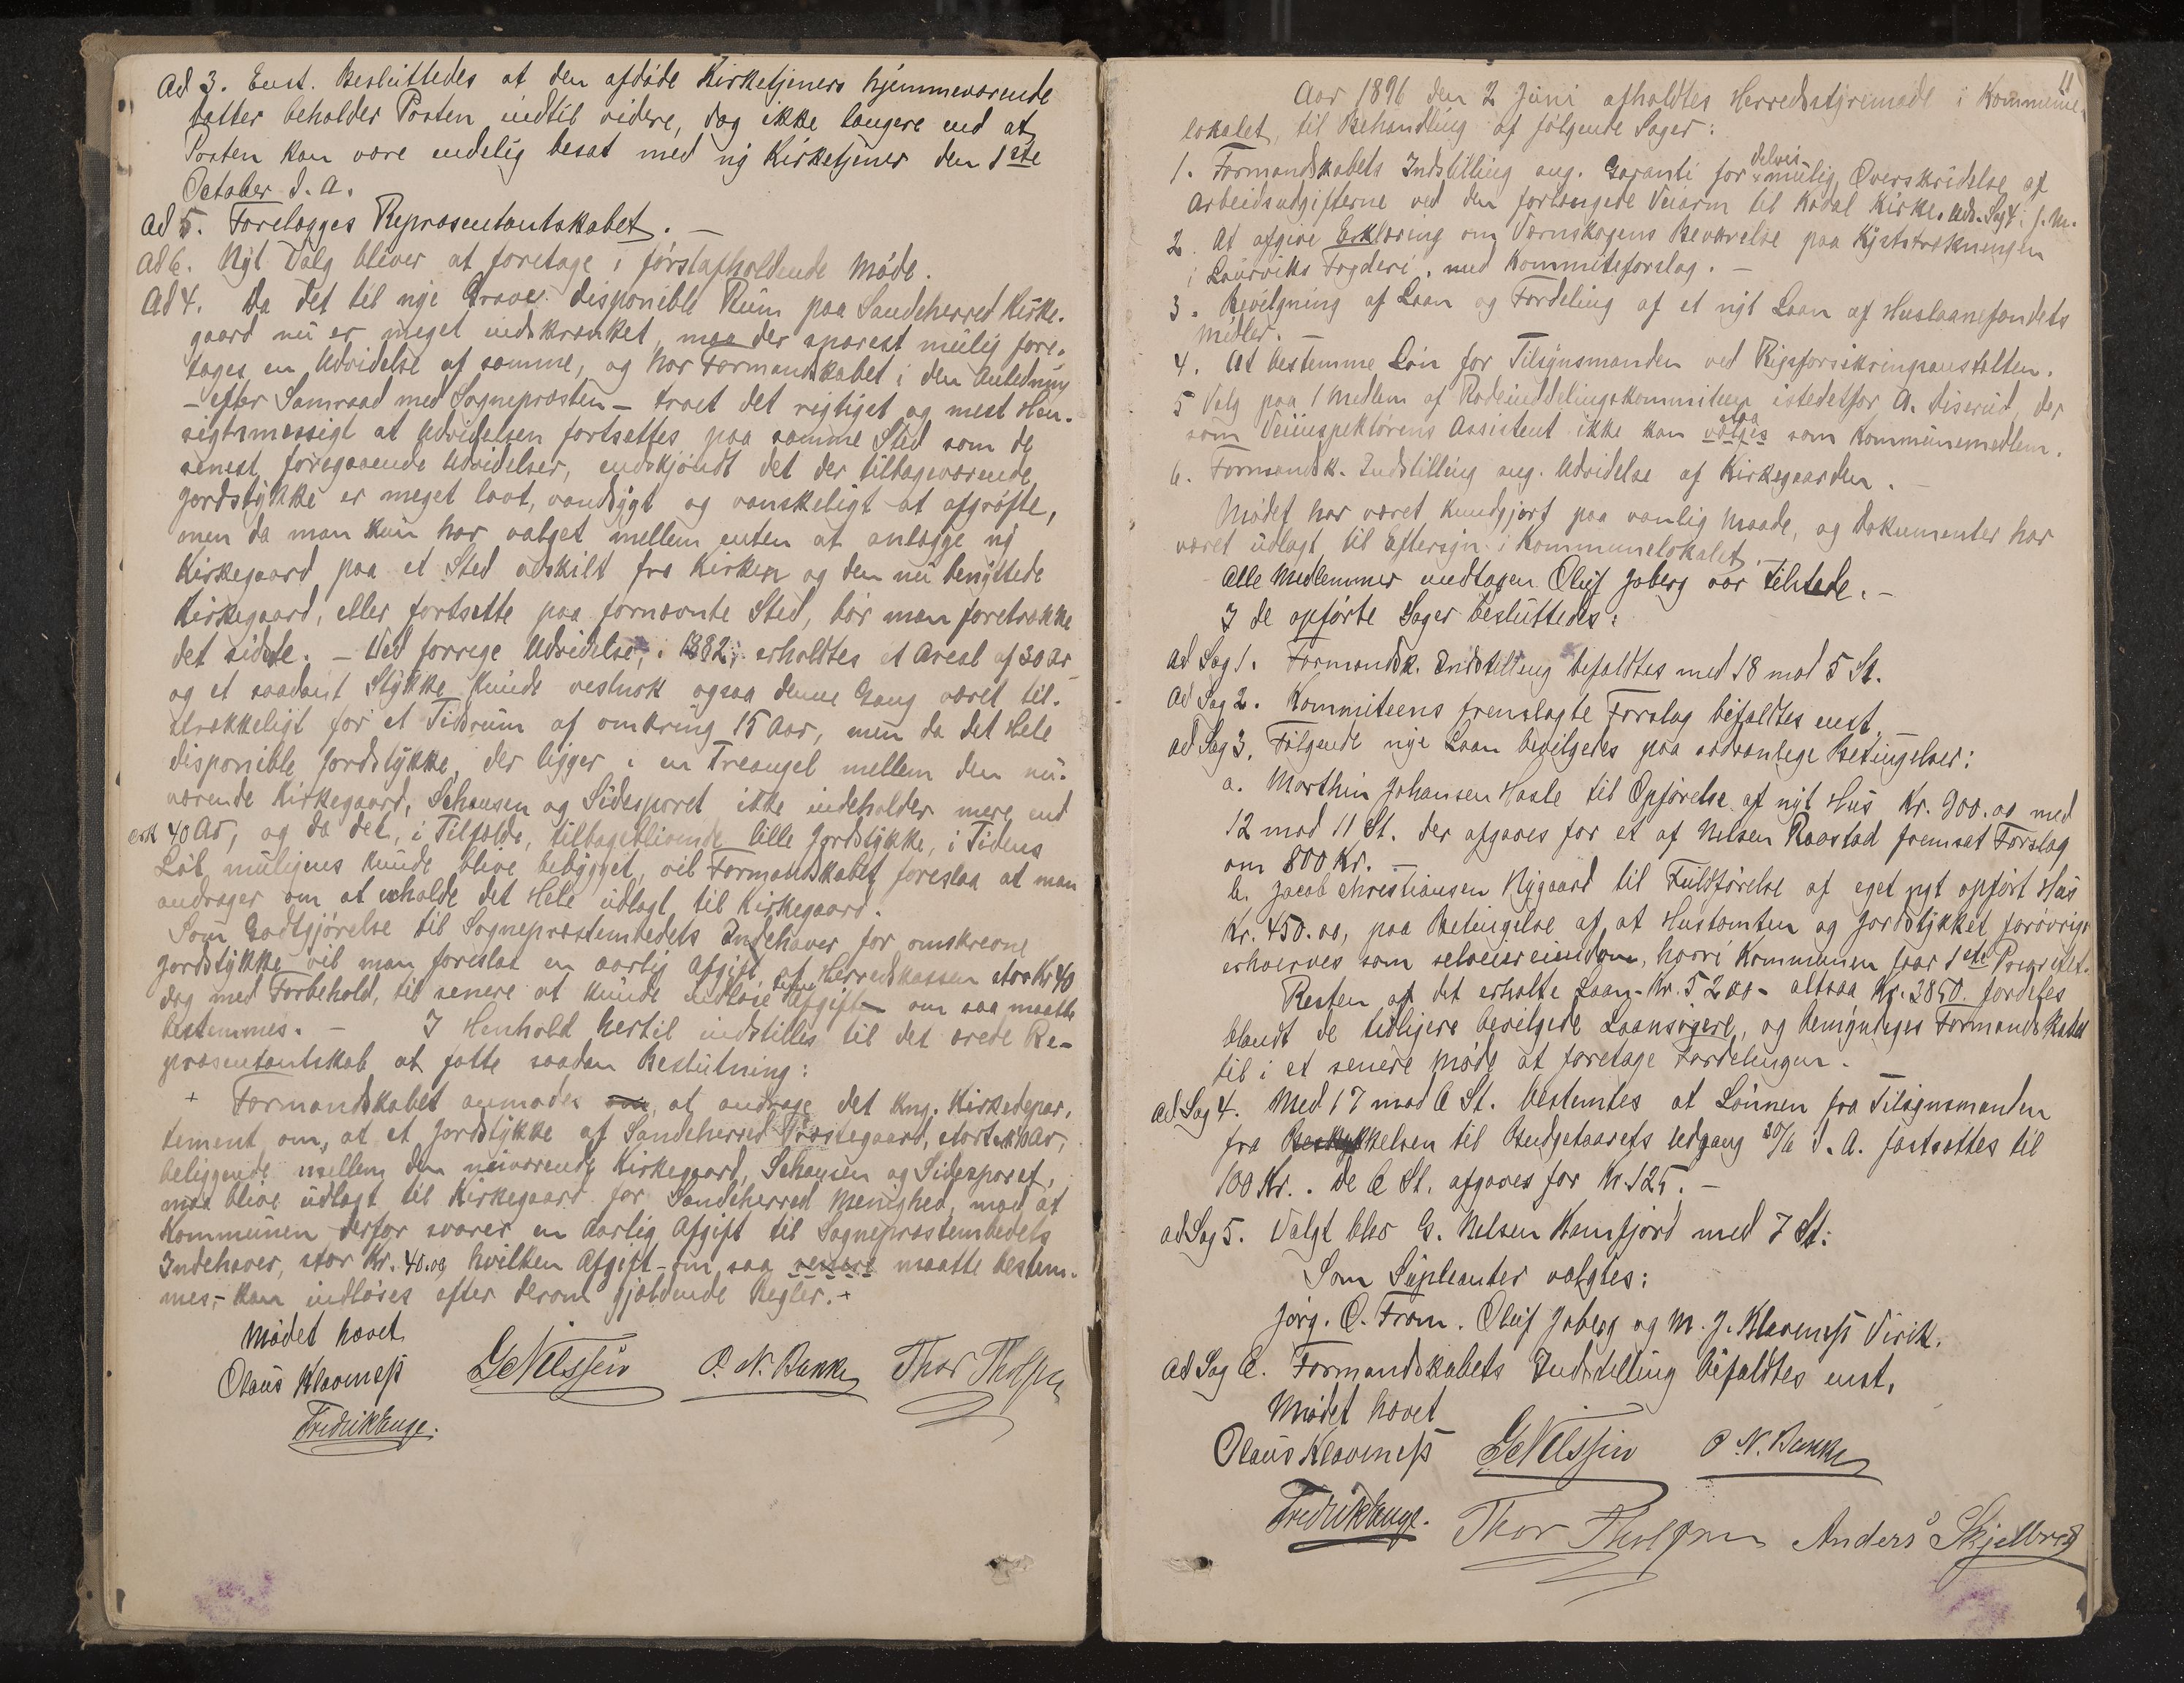 Ad 3. Enst. Besluttedes at den afdøde Kirketjeners hjemmeværende
datter beholder Posten indtil videre, dog ikke længere end at
Posten kan være endelig besat med ny Kirketjener den 1ste
October d. A.
Ad 5. Forelægges Repræsentantskabet. —
Ad 6. Nyt Valg bliver at foretage i førstafholdende Møde.
Ad 4. Da det til nye Grave disponible Rum paa Sandeherred Kirke-
gaard nu er meget indskrænket, maa der snarest mulig fore-
tages en Udvidelse af samme, og har Formandskabet i den Anledning
– efter Samraad med Sognepræsten – troet det rigtiget og mest Hen-
sigtsmæssigt at Udvidelsen fortsættes paa samme Sted som de
senest foregaaende Udvidelser, endskjøndt det der tilbageværende
Jordstykke er meget lavt, vandsygt og vanskeligt at afgrøfte,
men da man kun har valget mellem enten at anlægge ny
Kirkegaard paa et Sted adskilt fra Kirken og den nu benyttede
Kirkegaard, eller fortsætte paa fornævnte Sted, bør man foretrække
det sidste. – Ved forrige Udvidelse, i 1882, erholdtes et Areal af 30 ar
og et saadant Stykke kunde vestnok ogsaa denne Gang været til-
strækkeligt for et Tidsrum af omkring 15 Aar, men da det Hele
disponible Jordstykke, der ligger i en Treangel mellem den nu-
værende Kirkegaard, Schausen og Sidesporet ikke indeholder mere end
ca 40 Ar, og da det, i Tilfælde, tilbageblivende lille Jordstykke, i Tidens
Løb muligens kunde blive bebygget, vil Formandskabet foreslaa at man
andrager om at erholde det Hele udlagt til Kirkegaard.
Som Godtgjørelse til Sognepræstembedets Indehaver for omskrevne
Jordstykke vil man foreslaa en aarlig Afgift af Herredskassen stor Kr 40
dog med Forbehold, til senere at kunde indløse Afgiften om saa maatte
bestemmes. – I Henhold hertil indstilles til det ærede Re-
præsentantskab at fatte saadan Beslutning:
+ Formandskabet anmodes om, at andrage det kng. Kirkedepar-
tement om, at et Jordstykke af Sandeherred Præstegaard, stort 40 Ar,
beliggende mellem den nuværende Kirkegaard, Schausen og Sidesporet,
maa blive udlagt til Kirkegaard for Sandeherred Menighed, mod at
Kommunen derfor svarer en Aarlig Afgift til Sognepræstembedets
Indehaver, stor Kr. 40.00, hvilken Afgift – om saa senere maatte bestem-
mes, – kan indløses efter derom gjældende Regler. +
Mødet hævet
Olaus Klavness GNilssen O. N. Bakke Thor Tholfsen
Fredrik Lange.
11
Aar 1896 den 2 Juni afholdtes Herredsstyremøde i Kommune-
lokalet, til Behandling af følgende Sager:
1. Formandskabets Indstilling ang. Garanti for delvis mulig Overskridelse af
Arbeidsudgifterne ved den forlængede Veiarm til Kodal Kirke. Uds. Sag 4. f. M.
2. At afgive Erklæring om Værnskogens Bevarelse paa Kyststrækningen
i Laurviks Fogderi, med Kommiteforslag. —
3. Bevilgning af Laan og Fordeling af et nyt Laan af Huslaanefondets
Midler. —
4. At bestemme Løn for Tilsynsmanden ved Rigsforsikringsanstalten.
5 Valg paa 1 Medlem af Rodeinddelingskommiteen istedetfor A. Liserud, der
som Veiinspektørens Assistent ikke kan staa vælges som Kommunemedlem.
6. Formandsk. Indstilling ang. Udvidelse af Kirkegaarden. —
Mødet har været kundgjort paa vanlig Maade, og Dokumenter har
været udlagt til Eftersyn i Kommunelokalet. —
Alle Medlemmer undtagen Oluf Joberg var tilstede. —
I de opførte Sager besluttedes:
ad Sag 1. Formandsk. Indstilling bifaldtes med 18 mod 5 St.
ad Sag 2. Kommiteens fremlagte Forslag bifaldtes enst.
ad Sag 3. Følgende nye Laan bevilgedes paa sædvanlige Betingelser:
a. Marthin Johansen Hasle til Opførelse af nyt Hus Kr. 900.00 med
12 mod 11 St. der afgaves for et af Nelsen Raastad fremsat Forslag
om 800 Kr. —
b. Jacob Christiansen Nygaard til Fuldførelse af eget nyt opført Hus
Kr. 450.00, paa Betingelse af at Hustomten og Jordstykket forøvrigt
erhverves som selveiereiendom, hvori Kommunen faar 1ste Prioritet.
Resten af det erholte Laan – Kr. 5200 – altsaa Kr. 3850 fordeles
blandt de tidligere bevilgede Laansøgere, og bemyndiges Formandskabet
til i et senere møde at foretage Fordelingen.
ad Sag 4. Med 17 mod 6 St. bestemtes at Lønnen fra Tilsynsmanden
fra Beskikkelsen til Budgetaarets Udgang 30/6 d. A. fastsættes til
100 Kr. . De 6 St. afgaves for Kr. 125. —
ad Sag 5. Valgt blev G. Nelsen Kamfjord med 7 St.
Som Supleanter valgtes:
Jørg. C. Fram. Oluf Joberg og M. J. Klavness Virik.
ad Sag 6. Formandskabets Indstilling bifaldtes enst.
Mødet hævet
Olaus Klavness GNilssen O. N. Bakke
Fredrik Lange. Thor Tholfsen Anders Skjelbred